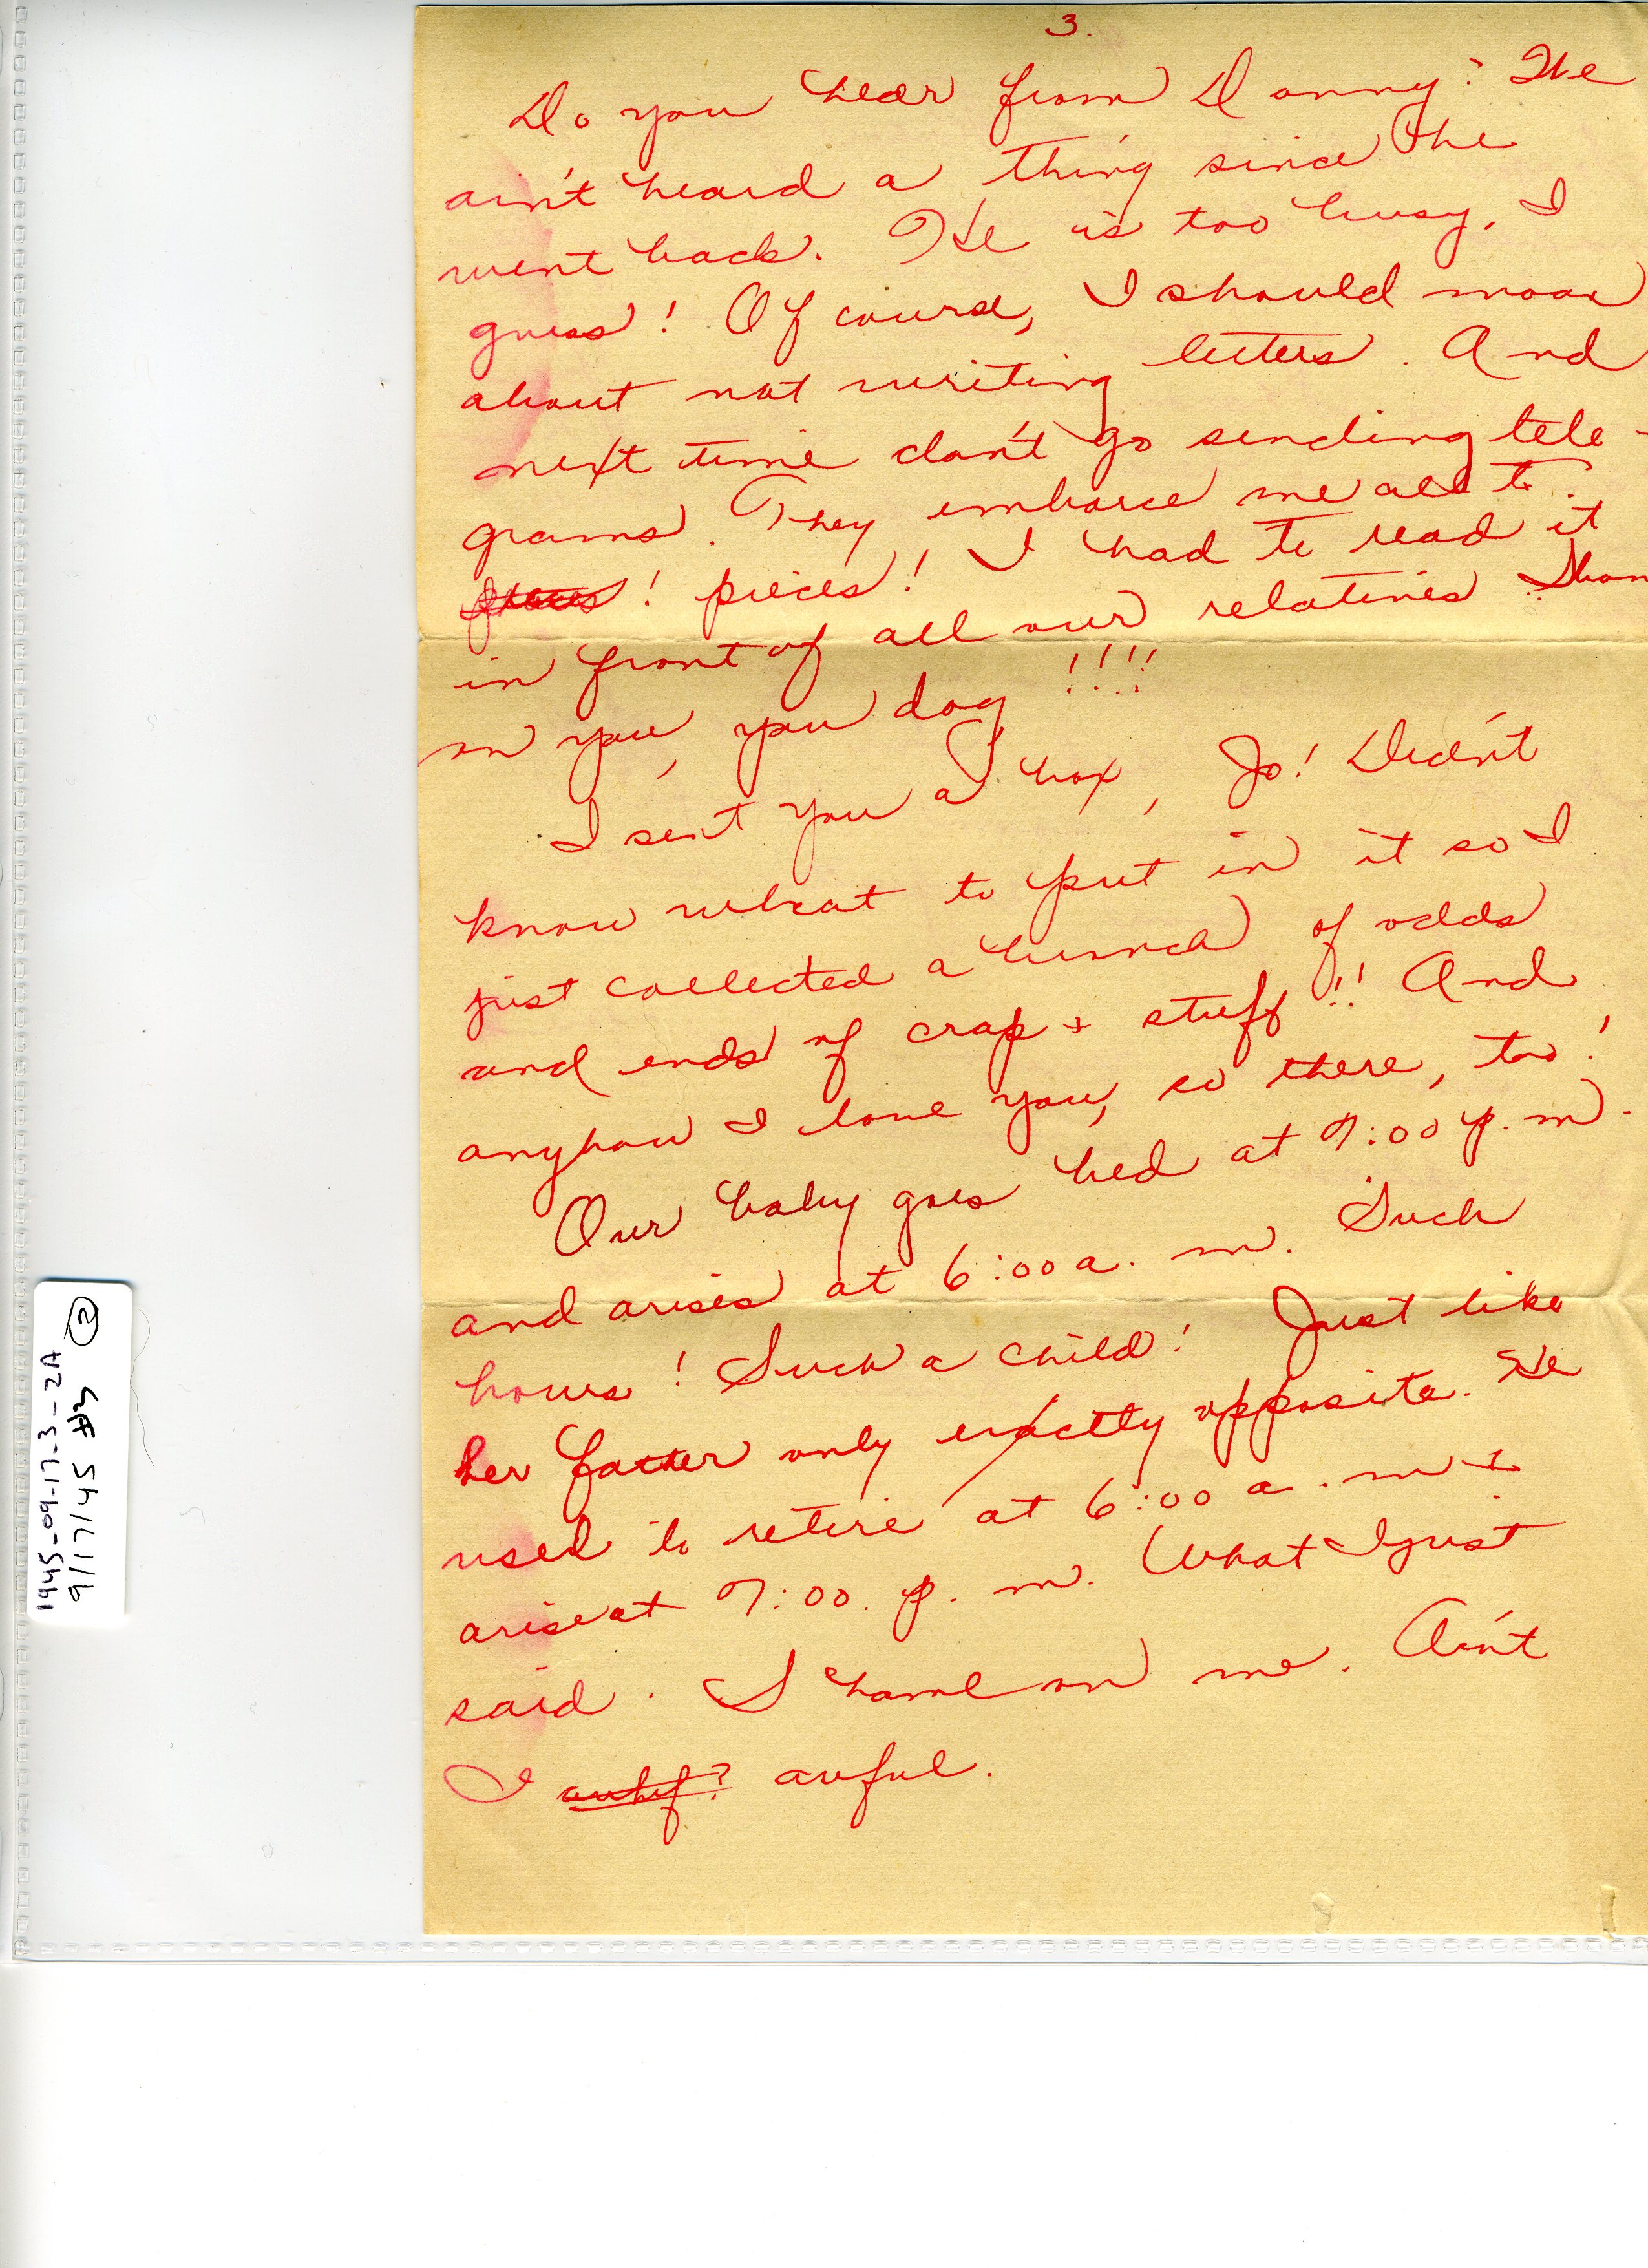 3.
Do you hear from Danny? We
ain't heard a thing since he
went back. He is too busy, I
guess! Of course, I should moan
about not writing letters. And
next time don't go sending tele-
grams. They embarce me all to
pieces! pieces! I had to read it
in front of all our relatives Sham
on you, you dog!!!!
I sent you a box, Jo! Didn't
know what to put in it so I
just collected a bunch of odds
and ends of crap + stuff!! And
anyhow I love you, so there, too!
Our baby goes bed at 7:00 p.m.
and arises at 6:00 a.m. Such
hours! Such a child! Just like
her father only exactly opposite. He
used to retire at 6:00 a.m. +
arise at 7:00. p.m. What I just
said. Shame on me. Ain't
I awful.
1945-09-17-3-2A
9/17/45 #3 2